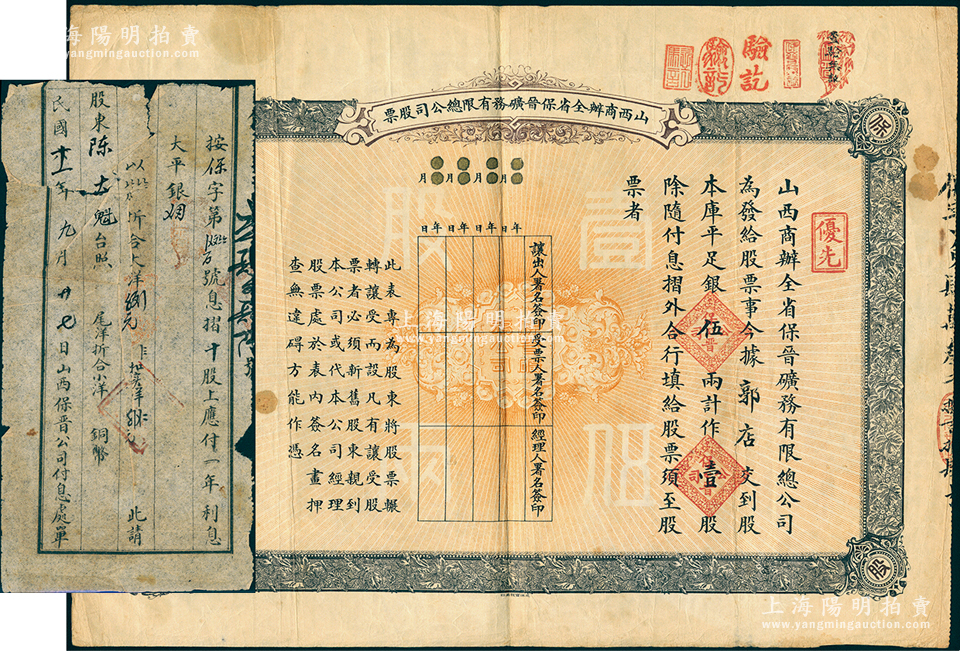 海陽明拍賣
www.yangmingauction.com
驗訖
山西商辦全省保晉礦務有限總公司股票
優先
山西商辦全省保晉礦務有限總公司
為發給股票事今據郭店交到股
本庫平足銀伍兩計作壹股
除隨付息摺外合行填給股票須至股
票者
壹伍
股
月 月 月 月
年 日 年 日 年 日 年 日
讓出人署名簽印
受票人署名簽印
經理人署名簽印
此表專為股東將股票輾
轉讓受而設凡有讓受股
票者必須新舊股東親到
本公司或代本公司經理
股票處於表內簽名畫押
查無違碍方能作憑
股
按保字第 號息摺十股上應付一年利息
大平銀
以 折合大洋 元 此請
股東陳 魁台照 尾洋折合小洋 銅幣
民國十一年九月廿七日山西保晉公司付息處單
上海陽明拍賣
www.yangmingauction.com
上海陽明拍賣
www.yangmingauction.com